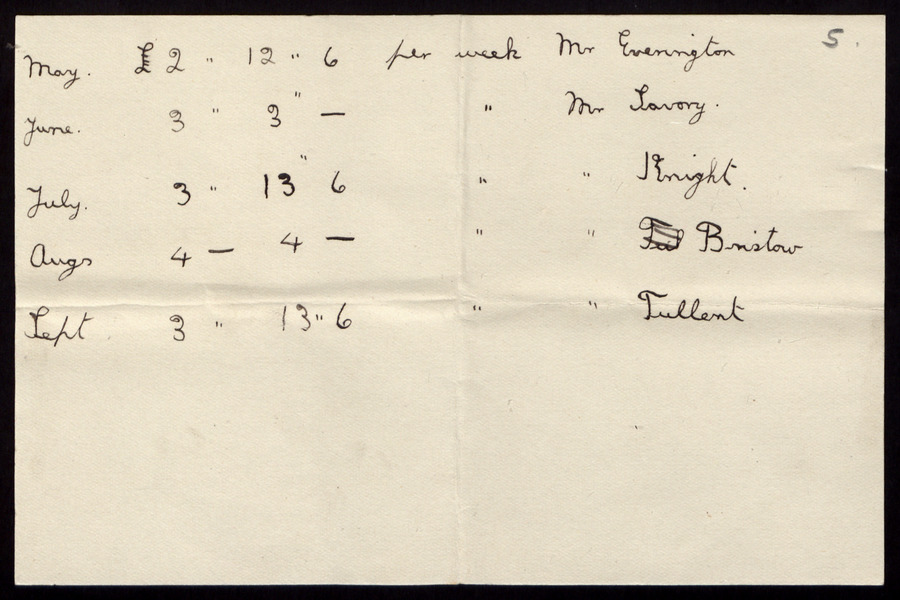 5.
May. £ 2 " 12 " 6 per week Mr Evenington
June. 3 " 3 " — " Mr Savory.
July. 3 " 13 " 6 " " Knight.
Augs 4 — 4 — " " Bristow
Sept 3 " 13 " 6 " " Tullent